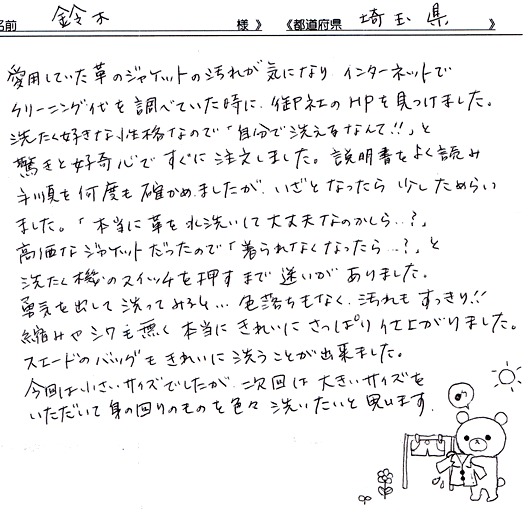 名前 鈴木 様》 《都道府県 埼玉県 》
愛用していた革のジャケットの汚れが気になり インターネットで
クリーニング代を調べていた時に、御社のHPを見つけました。
洗たく好きな性格なので「自分で洗えるなんて!!」と
驚きと好奇心ですぐに注文しました。説明書をよく読み
手順を何度も確かめましたが、いざとなったら少しためらい
ました。「本当に革を水洗いして大丈夫なのかしら…?」
高価なジャケットだったので「着られなくなったら…?」と
洗たく機のスイッチを押すまで迷いがありました。
勇気を出して洗ってみると… 色落ちもなく、汚れもすっきり!!
縮みやシワも無く本当にきれいにさっぱり仕上がりました。
スエードのバッグもきれいに洗うことが出来ました。
今回は小さいサイズでしたが、二次回は大きいサイズを
いただいて身の回りのものを色々洗いたいと思います。